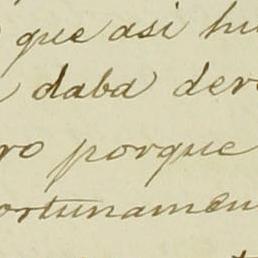 que asi hu
daba der
ro porque
ortunamen